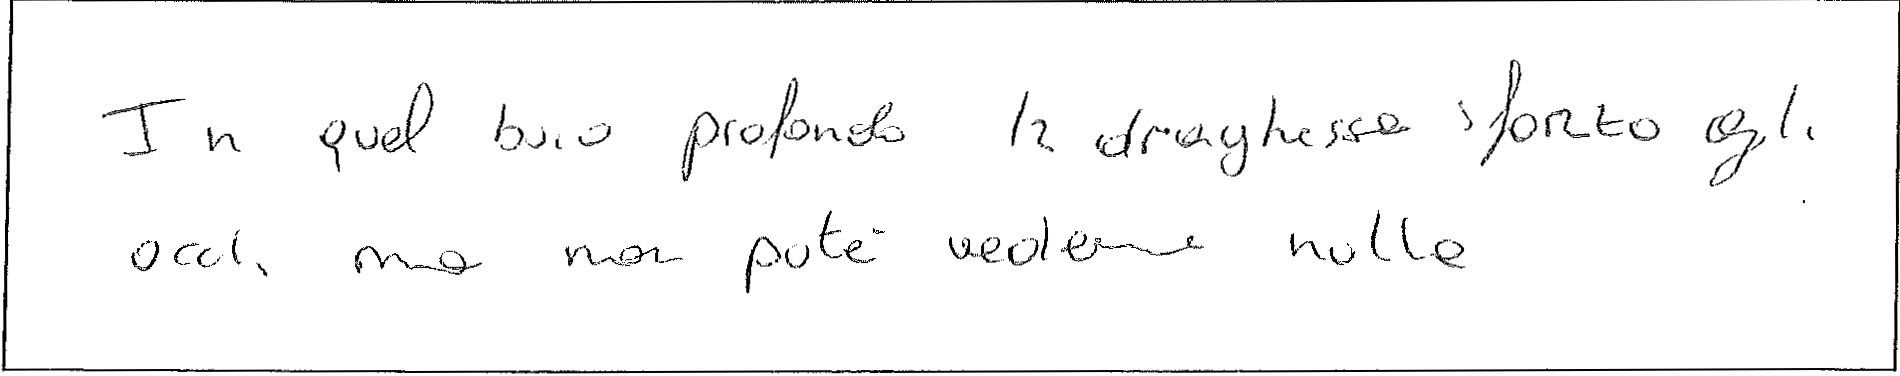 In quel buio profondo la draghessa sforzò gli
occhi ma non poté vederne nulla